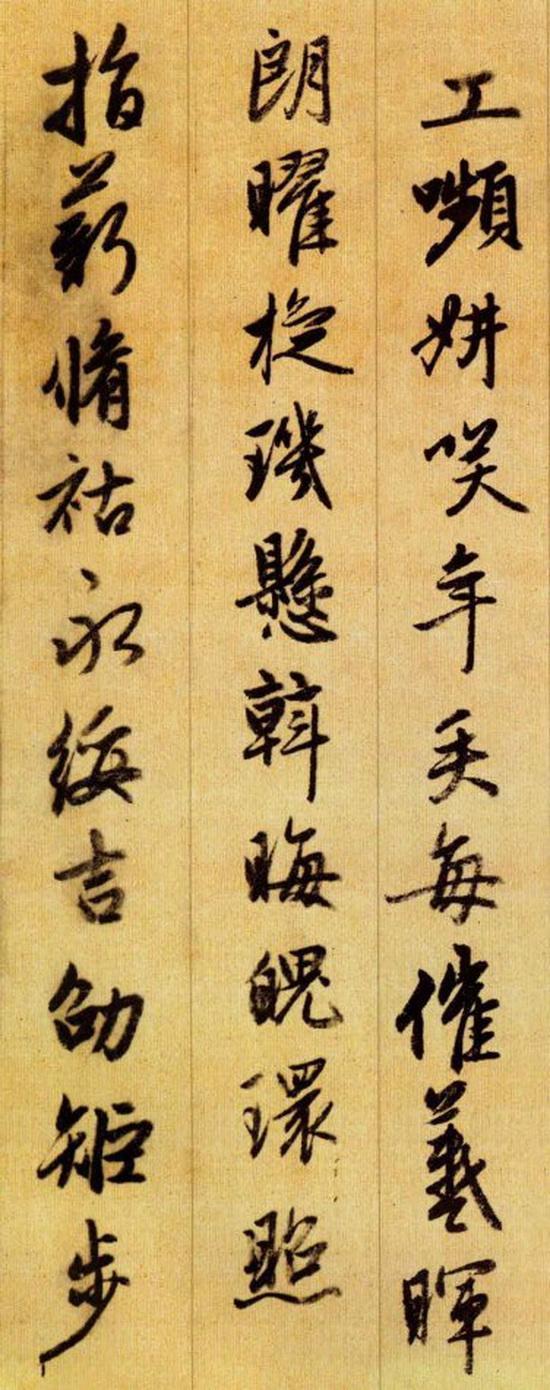 工嚬妍咲年矢每催羲暉
朗曜旋璣懸斡晦魄環照
指薪脩祜永綏吉劭矩步